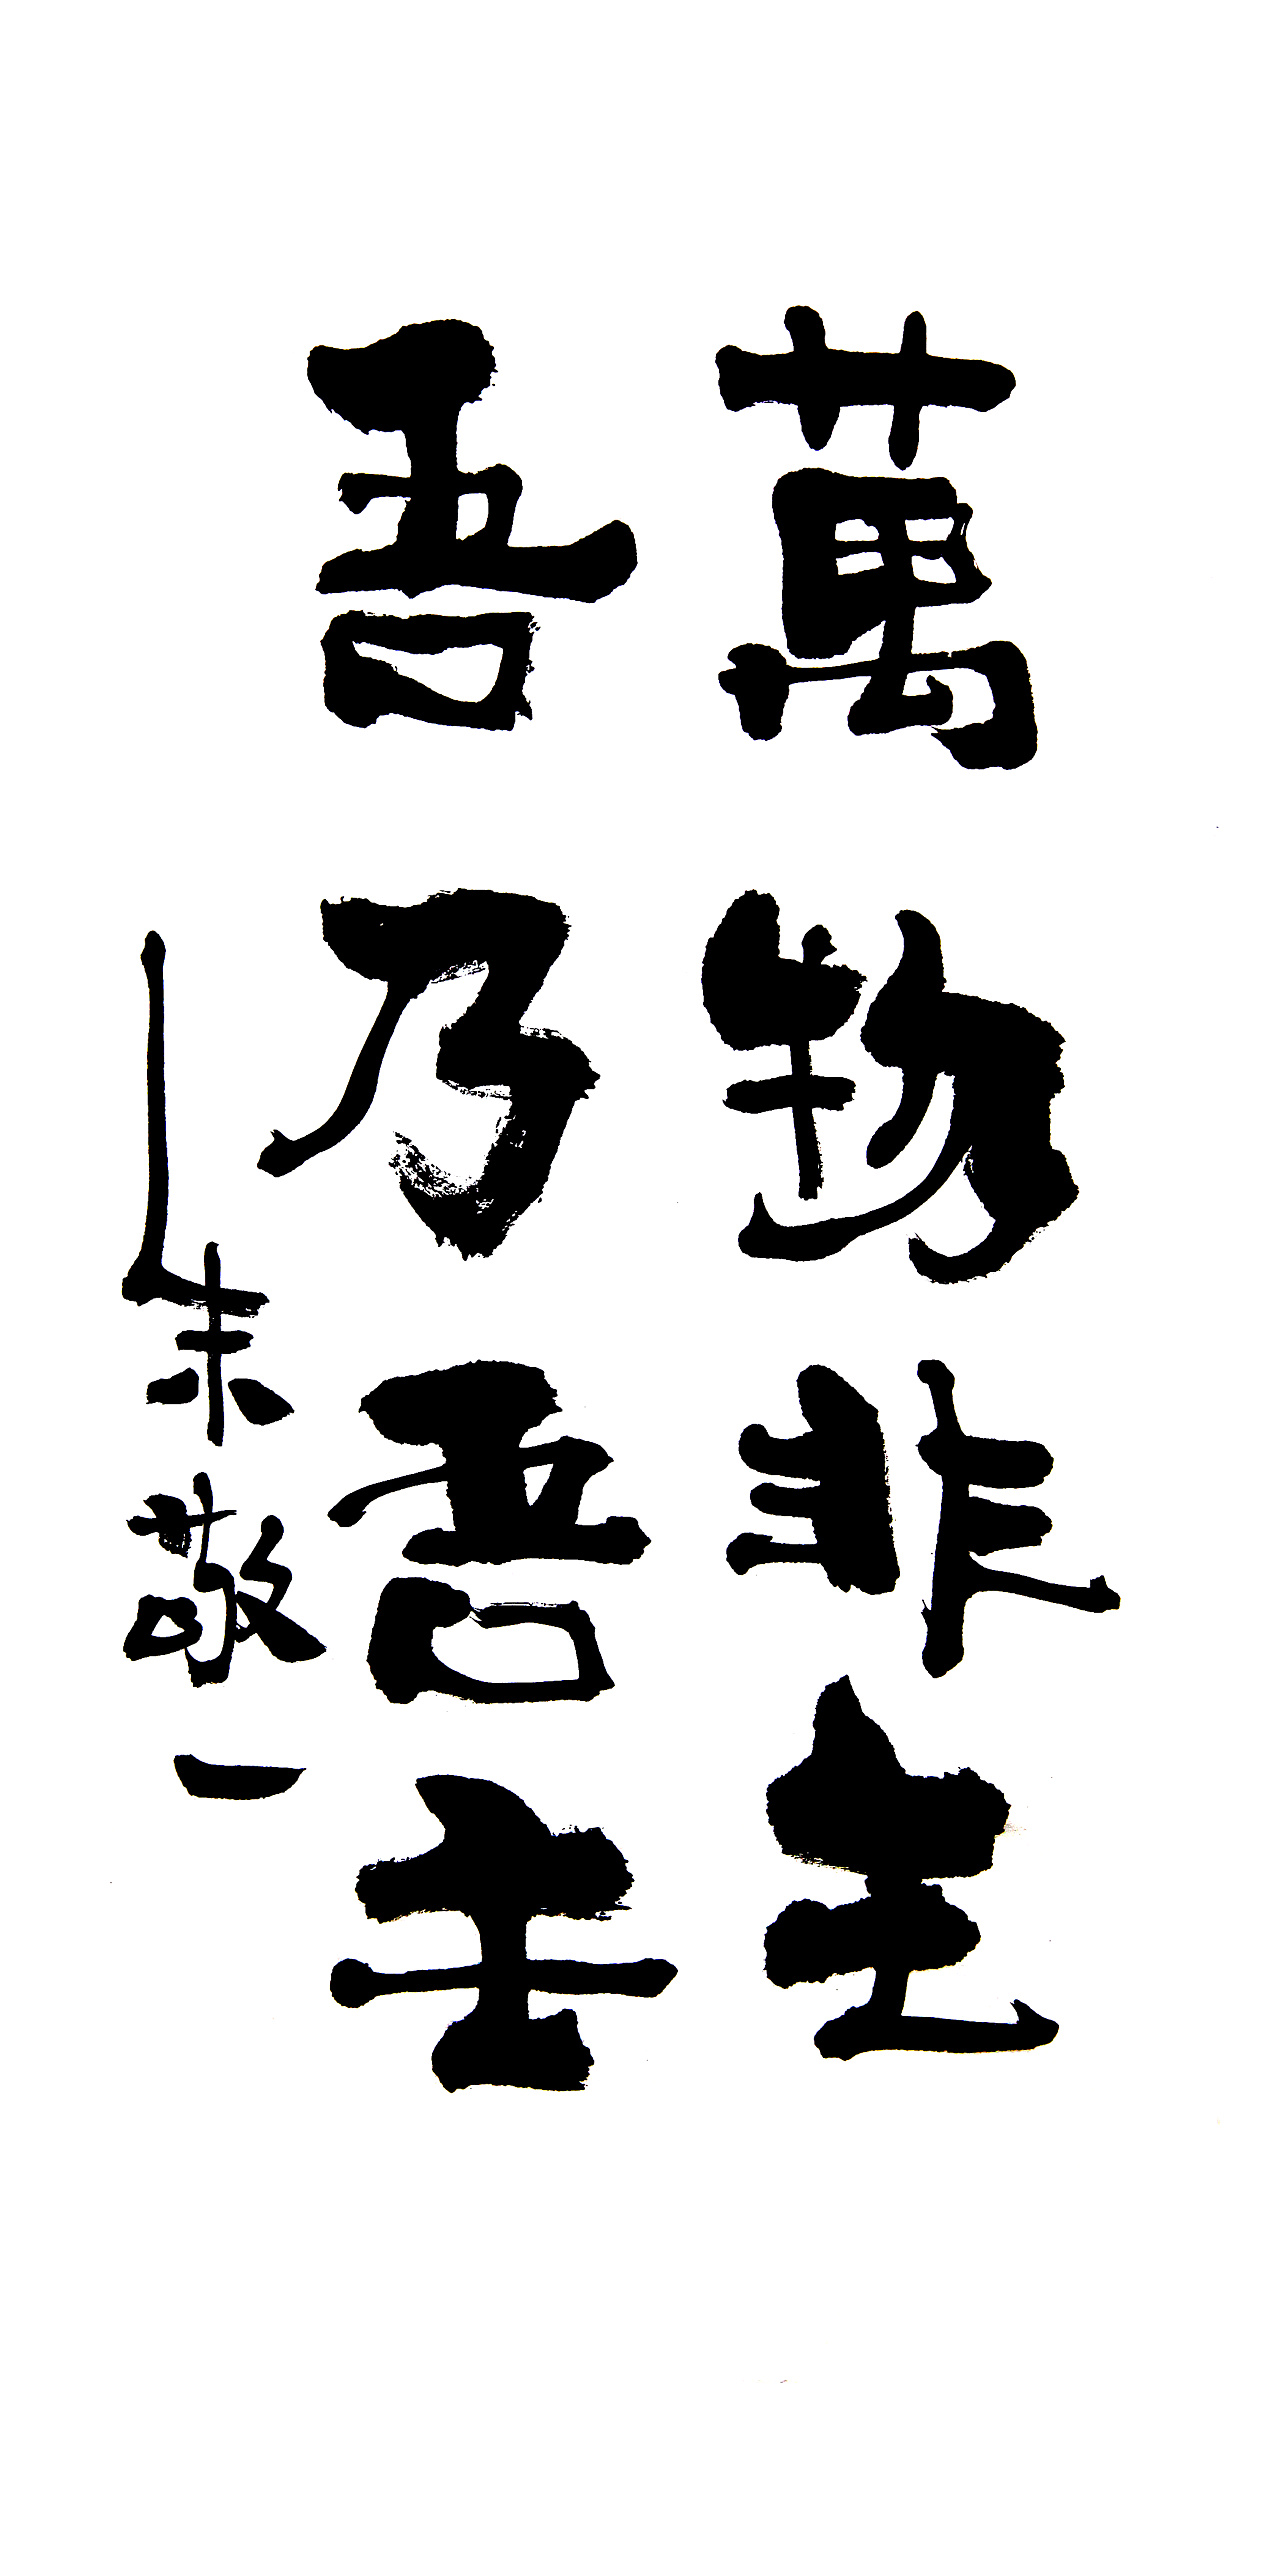 萬物非主
吾乃吾主
朱敬一